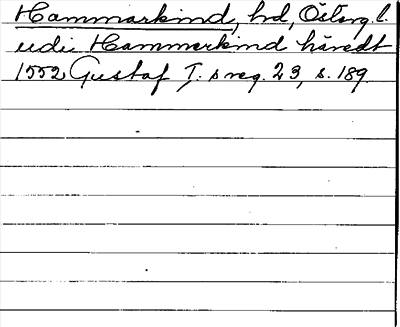 Hammarkind, hd, Österg. l.
udi Hammerkind häredt
1552 Gustaf I. s reg. 23, s. 189